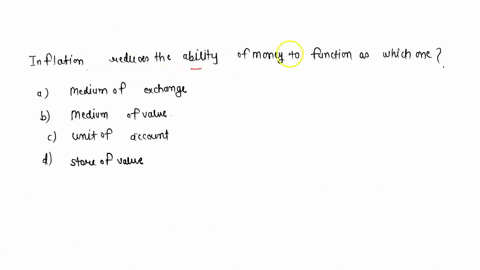 Inflation reduces the ability of money to function as which one?
a) medium of exchange
b) medium of value.
c) unit of account
d) store of value